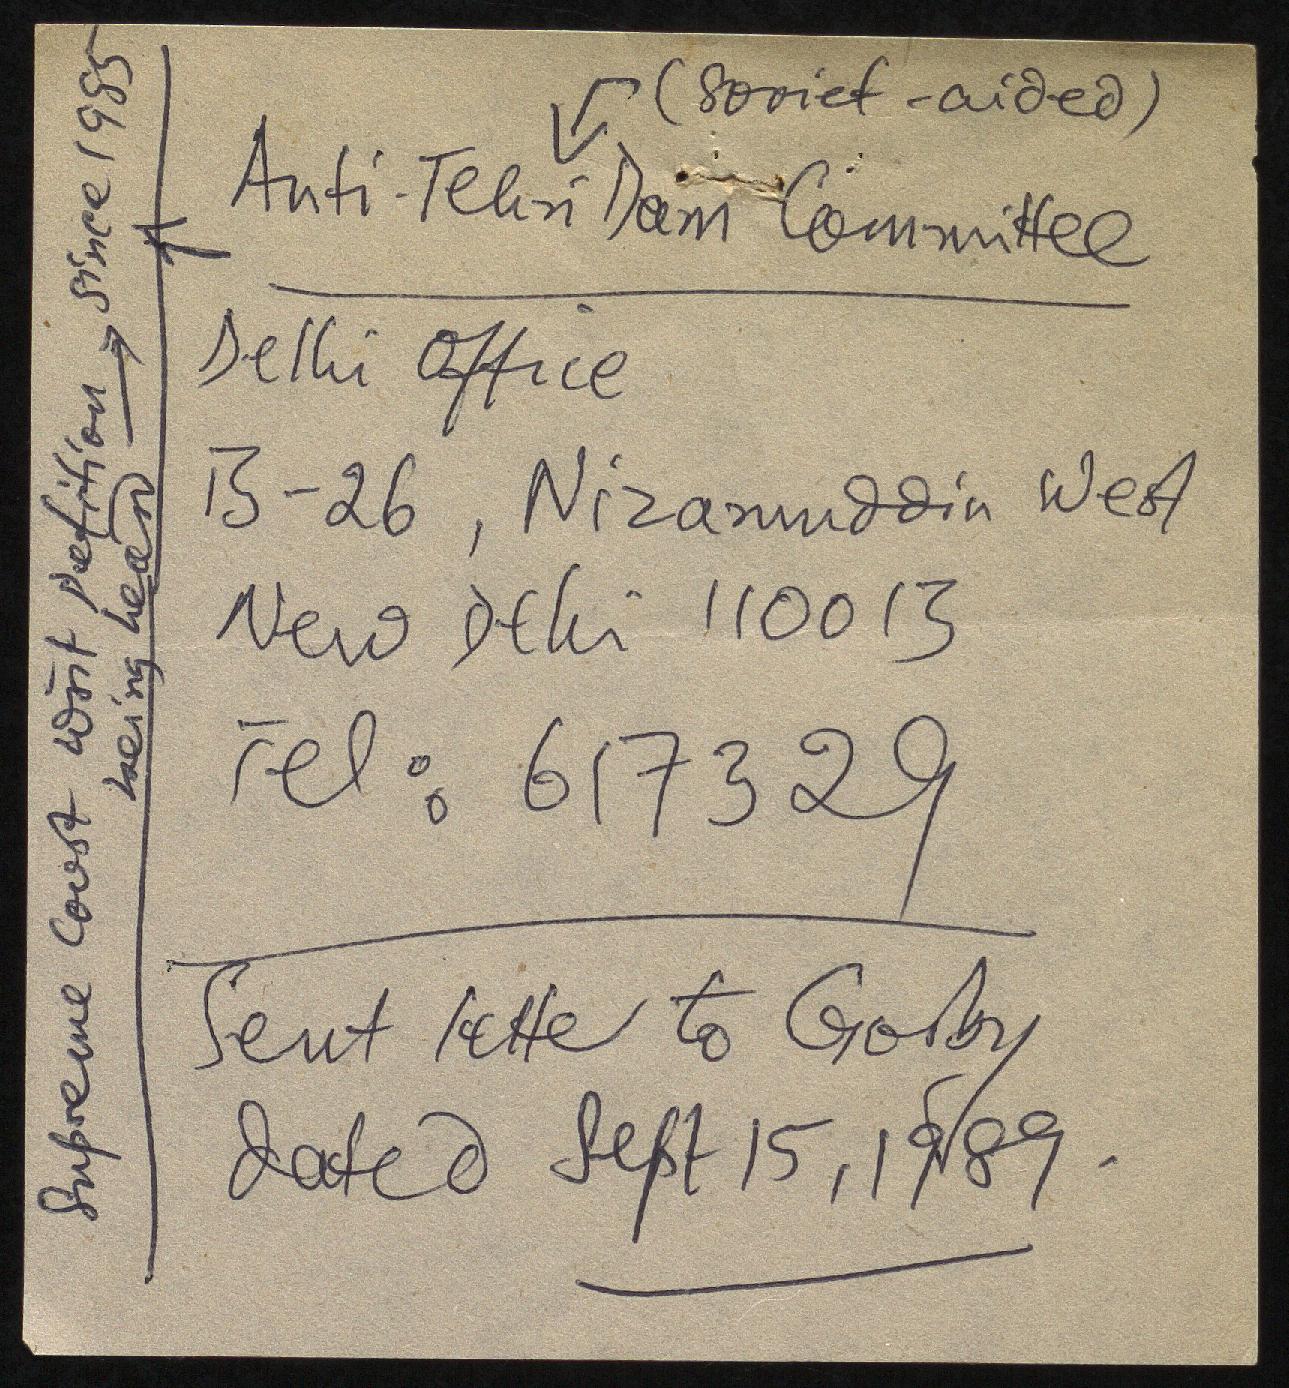 (Soviet-aided)
Anti-Tehri Dam Committee
Delhi Office
B-26, Nizamuddin West
New Delhi 110013
Tel: 617329
Sent letter to Gorby
dated Sept 15, 1989.
Supreme Court writ petition → since 1985
being heard